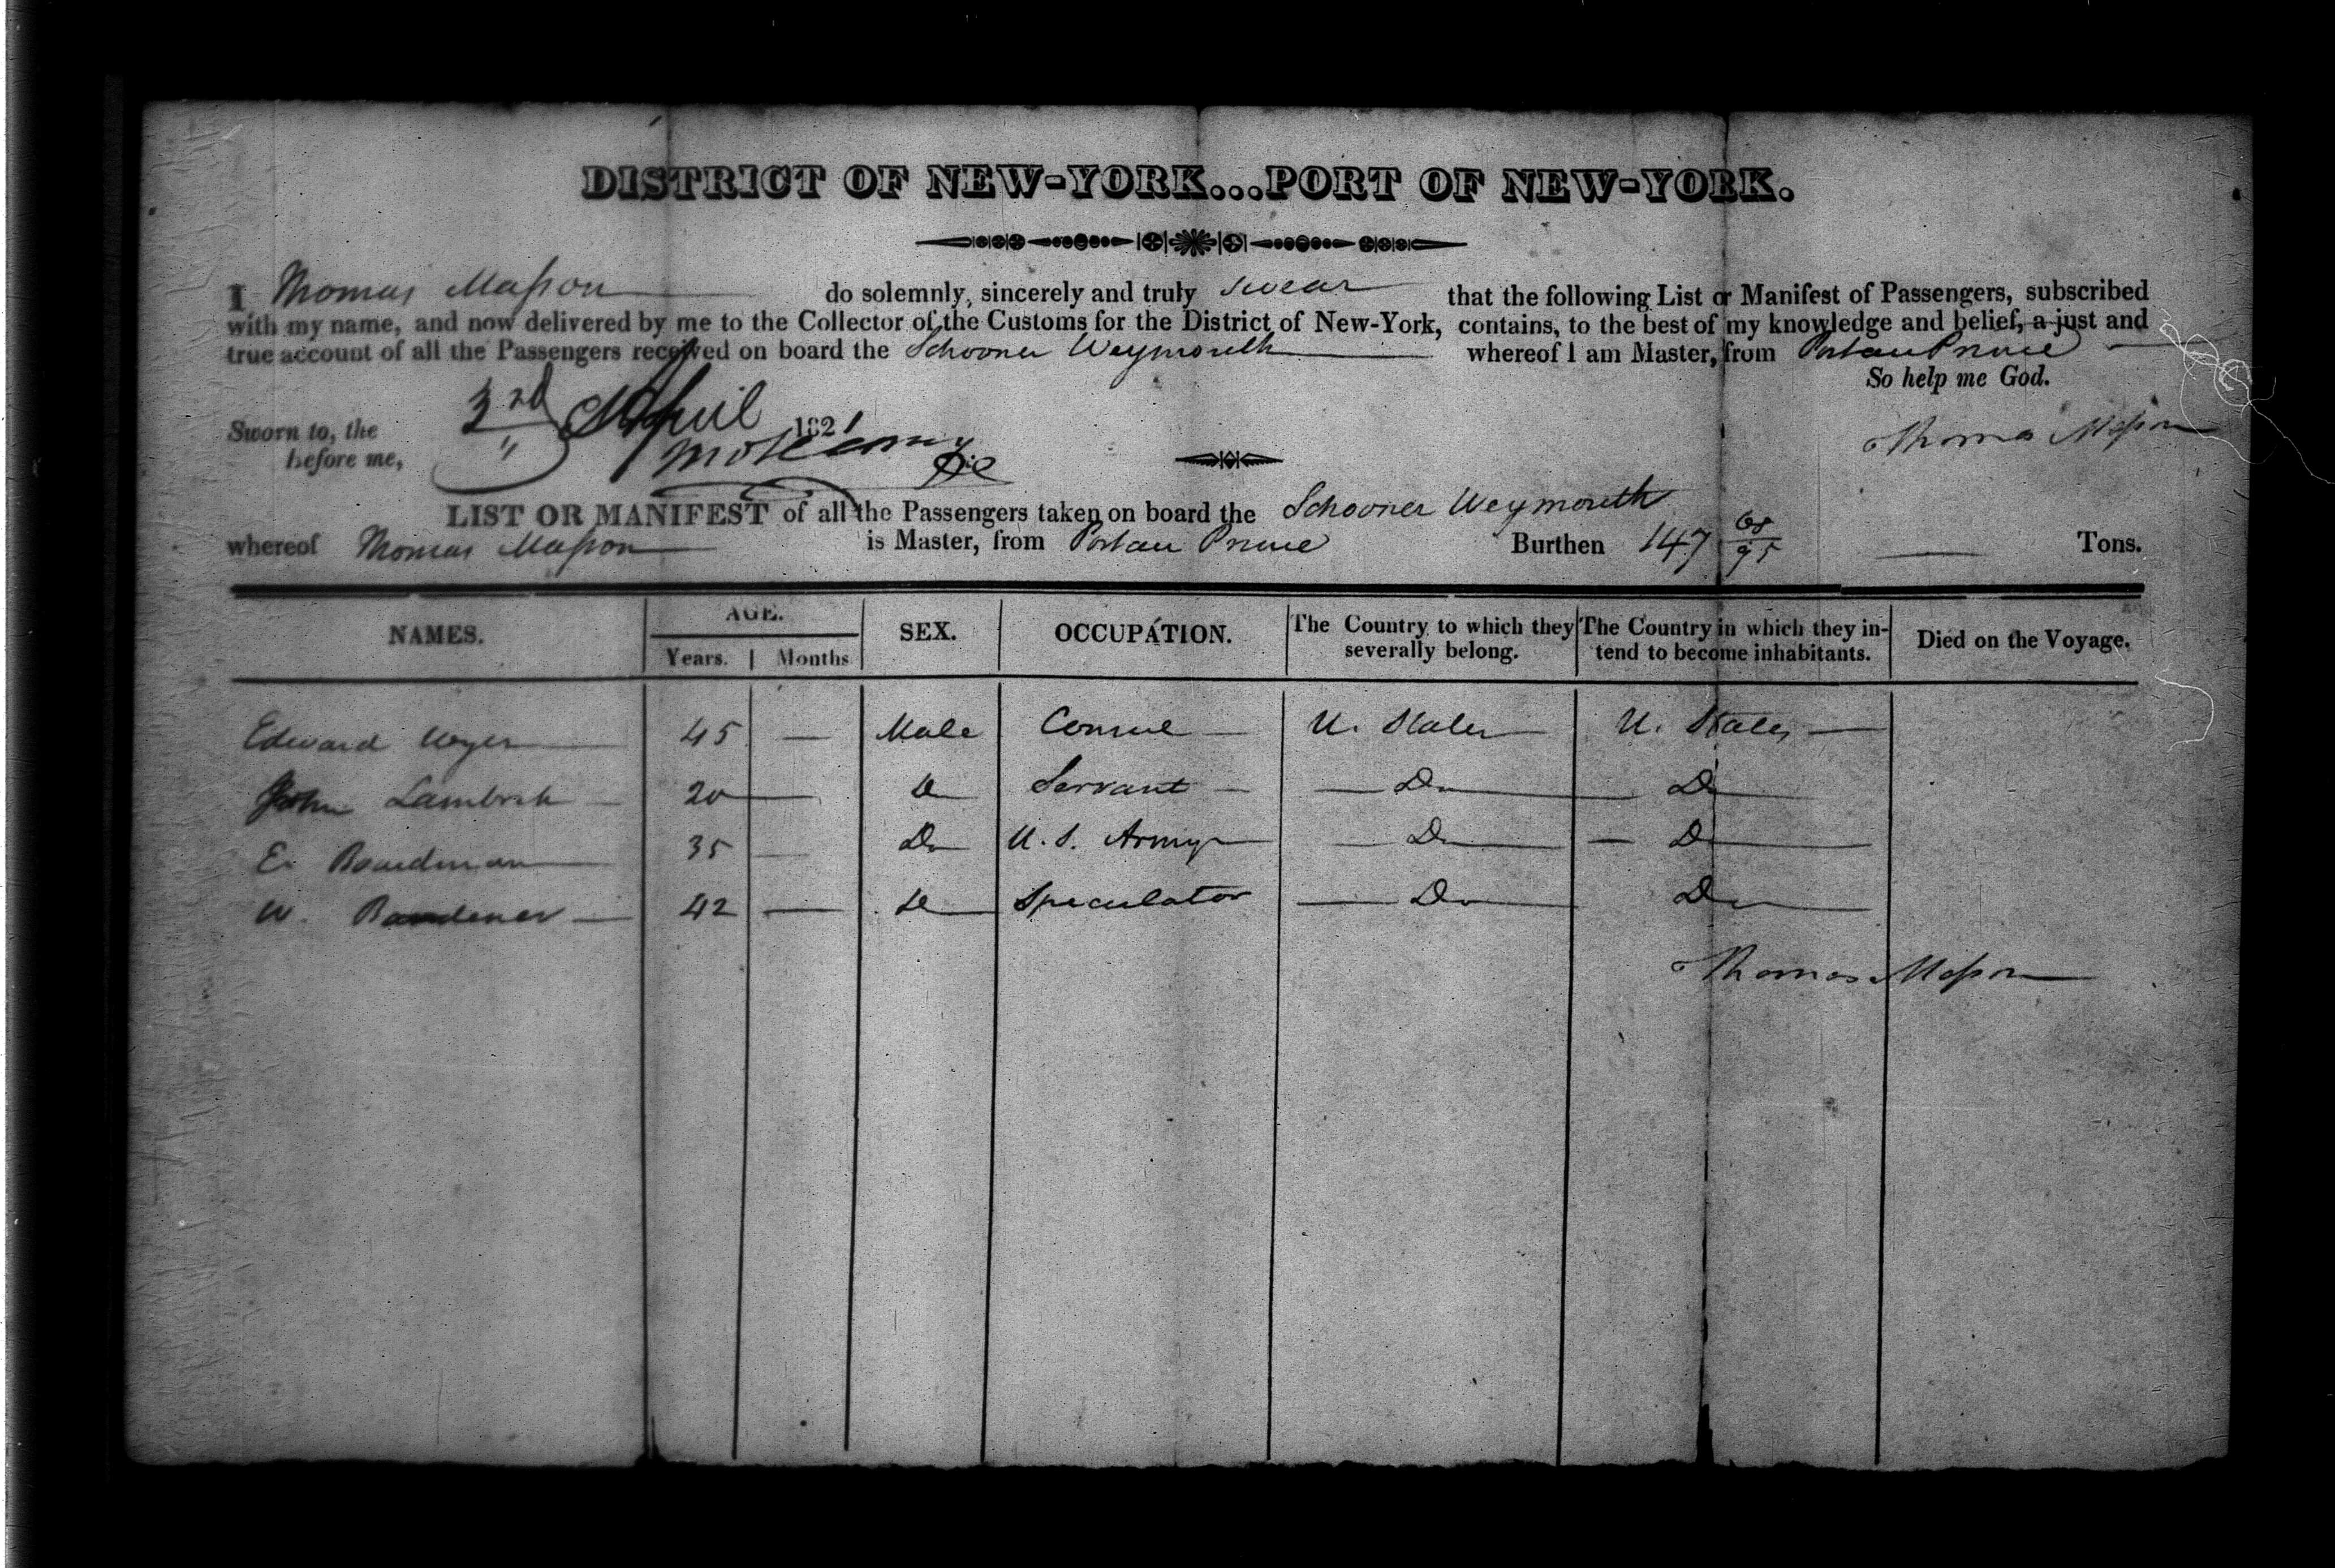 DISTRICT OF NEW-YORK...PORT OF NEW-YORK.
I Thomas Masson do solemnly, sincerely and truly swear that the following List or Manifest of Passengers, subscribed
with my name, and now delivered by me to the Collector of the Customs for the District of New-York, contains, to the best of my knowledge and belief, a just and
true account of all the Passengers received on board the Schooner Weymouth whereof I am Master, from Port au Prince
So help me God.
Sworn to, the 3rd April 1821
before me,
Thomas Masson
LIST OR MANIFEST of all the Passengers taken on board the Schooner Weymouth
whereof Thomas Masson is Master, from Port au Prince Burthen 147 68/95 Tons.
NAMES. AGE. SEX. OCCUPATION. The Country to which they severally belong. The Country in which they in- tend to become inhabitants. Died on the Voyage.
Years. Months
Edward Wyer 45 — Male Consul U. States U. States
John 20 — Do Servant Do Do
E. Boardman 35 — Do U.S. Army Do Do
W. 42 — Do Speculator Do Do
Thomas Masson